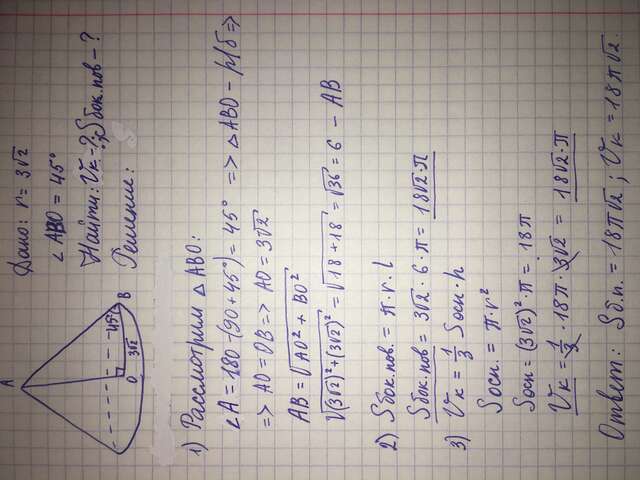 A
45°
O
3√2
B
Дано: r = 3√2
∠ABO = 45°
Найти: Vк-?; Sбок.пов-?
Решение:
1) Рассмотрим △ ABO:
∠A = 180-(90+45°) = 45° => △ABO - р/б =>
=> AO = OB => AO = 3√2
AB = √AO² + BO²
√(3√2)²+(3√2)² = √18+18 = √36 = 6 - AB
2) Sбок.пов. = π·r·l
Sбок.пов = 3√2·6·π = 18√2·π
3) Vк = 1/3 Sосн·h
Sосн. = π·r²
Sосн = (3√2)²·π = 18π
Vк = 1/3·18π·3√2 = 18√2·π
Ответ: Sб.п. = 18π√2; Vк = 18π√2.